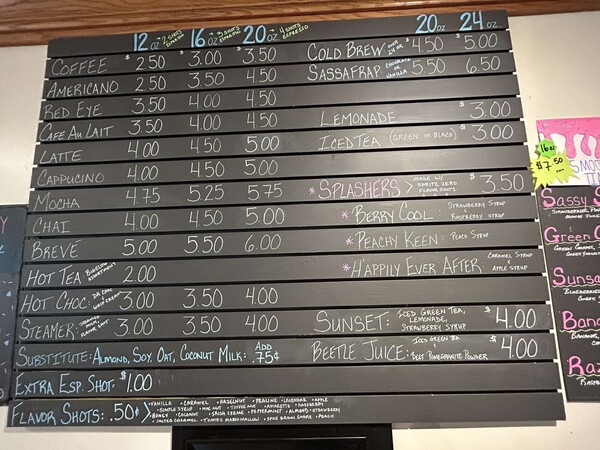 12 oz → 2 SHOTS ESPRESSO 16 oz → 3 SHOTS ESPRESSO 20 oz → 4 SHOTS ESPRESSO
COFFEE $2.50 $3.00 $3.50
AMERICANO 2.50 3.50 4.50
RED EYE 3.50 4.00 4.50
CAFE AU LAIT 3.50 4.00 4.50
LATTE 4.00 4.50 5.00
CAPPUCINO 4.00 4.50 5.00
MOCHA 4.75 5.25 5.75
CHAI 4.00 4.50 5.00
BREVÉ 5.00 5.50 6.00
HOT TEA BIGELOW ASSORTMENT 2.00
HOT CHOC: 3.00 3.50 4.00
STEAMER: 3.00 3.50 4.00
SUBSTITUTE: ALMOND, SOY, OAT, COCONUT MILK: ADD .75¢
EXTRA ESP. SHOT: $1.00
FLAVOR SHOTS: .50¢
• VANILLA • CARAMEL • HAZELNUT • PRALINE • LAVENDAR • APPLE
• SIMPLE SYRUP • MAC NUT • TOFFEE NUT • AMARETTO • RASPBERRY
• HONEY • COCONUT • IRISH CREME • PEPPERMINT • ALMOND • STRAWBERRY
• SALTED CARAMEL • TOASTED MARSHMALLOW • SPICE BROWN SUGAR • PEACH
20 oz 24 oz
COLD BREW $4.50 $5.00
SASSAFRAP: CHOCOLATE OR VANILLA 5.50 6.50
LEMONADE $3.00
ICED TEA (GREEN OR BLACK) $3.00
*SPLASHERS: MADE W/ SPRITE ZERO FLAVOR SHOTS $3.50
*BERRY COOL: STRAWBERRY SYRUP RASPBERRY SYRUP
*PEACHY KEEN: PEACH SYRUP
*H'APPILY EVER AFTER: CARAMEL SYRUP & APPLE SYRUP
SUNSET: ICED GREEN TEA, LEMONADE, STRAWBERRY SYRUP $4.00
BEETLE JUICE: ICED GREEN TEA & BEET POMEGRANATE POWDER $4.00
16 oz
$7.50
SASSY
GREEN
SUNSA
BANA
RAZ